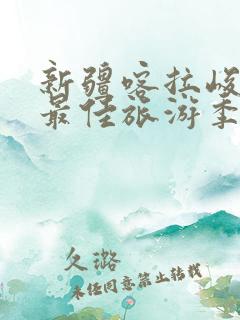 新疆喀拉峻
最佳旅游季
久璐
未经同意禁止转载